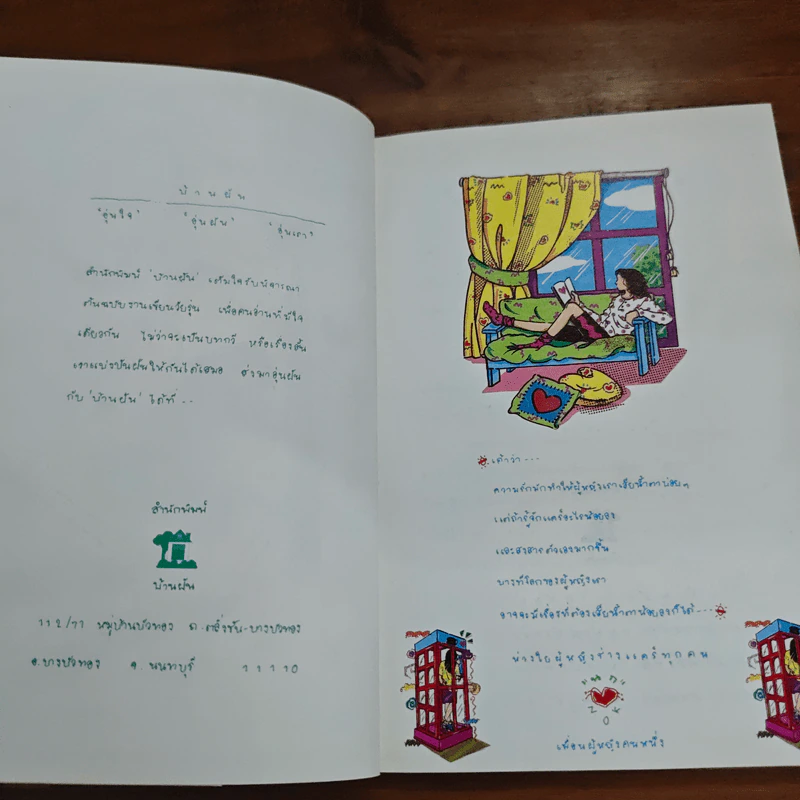 บ้านฝัน
"อุ่นใจ" "อุ่นฝัน" "อุ่นเรา"
สำนักพิมพ์ 'บ้านฝัน' เต็มใจรับพิจารณา
ต้นฉบับงานเขียนวัยรุ่น เพื่อคนอ่านที่มีใจ
เดียวกัน ไม่ว่าจะเป็นบทกวี หรือเรื่องสั้น
เราแบ่งปันฝันให้กันได้เสมอ ส่งมาอุ่นฝัน
กับ 'บ้านฝัน' ได้ที่...
สำนักพิมพ์
บ้านฝัน
112/71 หมู่บ้านบัวทอง ถ.ตลิ่งชัน-บางบัวทอง
อ.บางบัวทอง จ.นนทบุรี 11110
เค้าว่า...
ความรักมักทำให้ผู้หญิงเราเสียน้ำตาบ่อยๆ
แต่ถ้ารู้จักแคร์อะไรน้อยลง
และสงสารตัวเองมากขึ้น
บางทีโลกของผู้หญิงเรา
อาจจะมีเรื่องที่ต้องเสียน้ำตาน้อยลงก็ได้...
ห่วงใยผู้หญิงช่างแคร์ทุกคน
เพื่อนผู้หญิงคนหนึ่ง